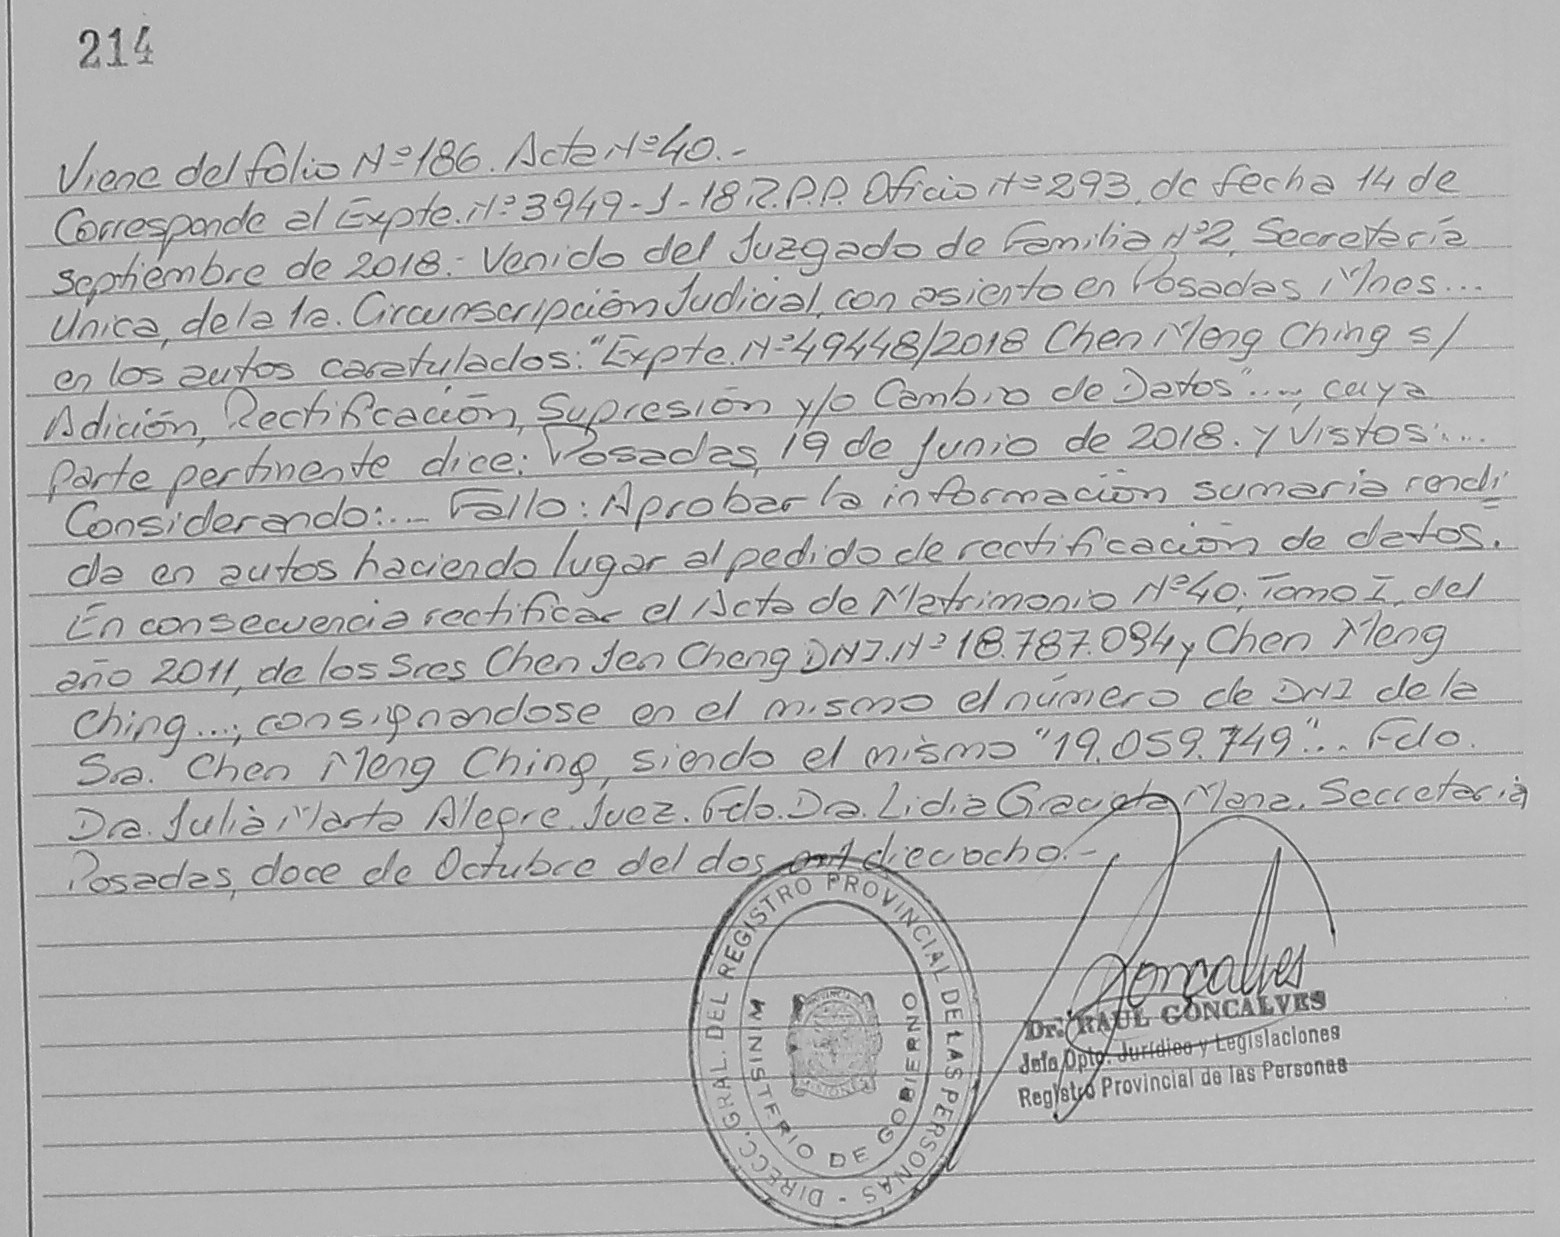 214
Viene del folio Nº 186. Acta Nº 40.-
Corresponde al Expte. Nº 3949-J-18 R.P.P. Oficio Nº 293, de fecha 14 de
septiembre de 2018.- Venido del Juzgado de Familia Nº 2, Secretaría
Unica, de la 1a. Circunscripción Judicial, con asiento en Posadas Mnes...
en los autos caratulados: "Expte. Nº 49448/2018 Chen Meng Ching s/
Adición, Rectificación, Supresión y/o Cambio de Datos"..., cuya
parte pertinente dice: Posadas, 19 de Junio de 2018. y Vistos:...
Considerando:... Fallo: Aprobar la información sumaria rendi
da en autos haciendo lugar al pedido de rectificación de datos.
En consecuencia rectificar el Acta de Matrimonio Nº 40, Tomo I, del
año 2011, de los Sres Chen Jen Cheng DNI. Nº 18.787.094 y Chen Meng
Ching...; consignandose en el mismo el número de DNI de la
Sra. Chen Meng Ching, siendo el mismo "19.059.749"... Fdo.
Dra. Julia Marta Alegre. Juez. Fdo. Dra. Lidia Graciela Secretaria
Posadas, doce de Octubre del dos mil dieciocho.-
DIRECC. GRAL. DEL REGISTRO PROVINCIAL DE LAS PERSONAS -
MINISTERIO DE GOBIERNO
MISIONES
Goncalves
Dr. RAUL GONCALVES
Jefe Dpto. Jurídico y Legislaciones
Registro Provincial de las Personas